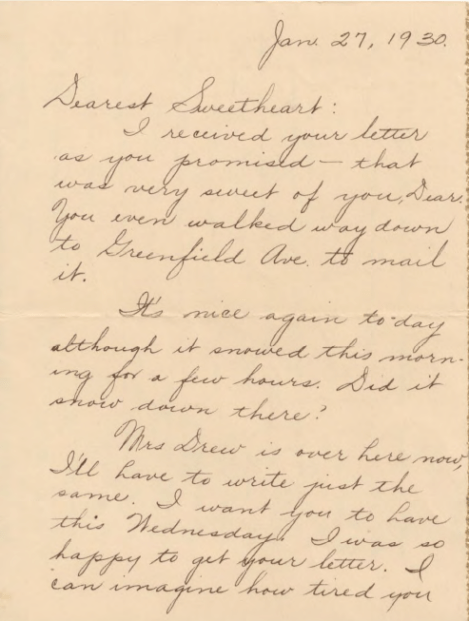 Jan. 27, 1930.
Dearest Sweetheart:
I received your letter
as you promised – that
was very sweet of you, Dear.
You even walked way down
to Greenfield Ave. to mail
it.
It's nice again to-day
although it snowed this morn-
ing for a few hours. Did it
snow down there?
Mrs Drew is over here now,
I'll have to write just the
same. I want you to have
this Wednesday. I was so
happy to get your letter. I
can imagine how tired you